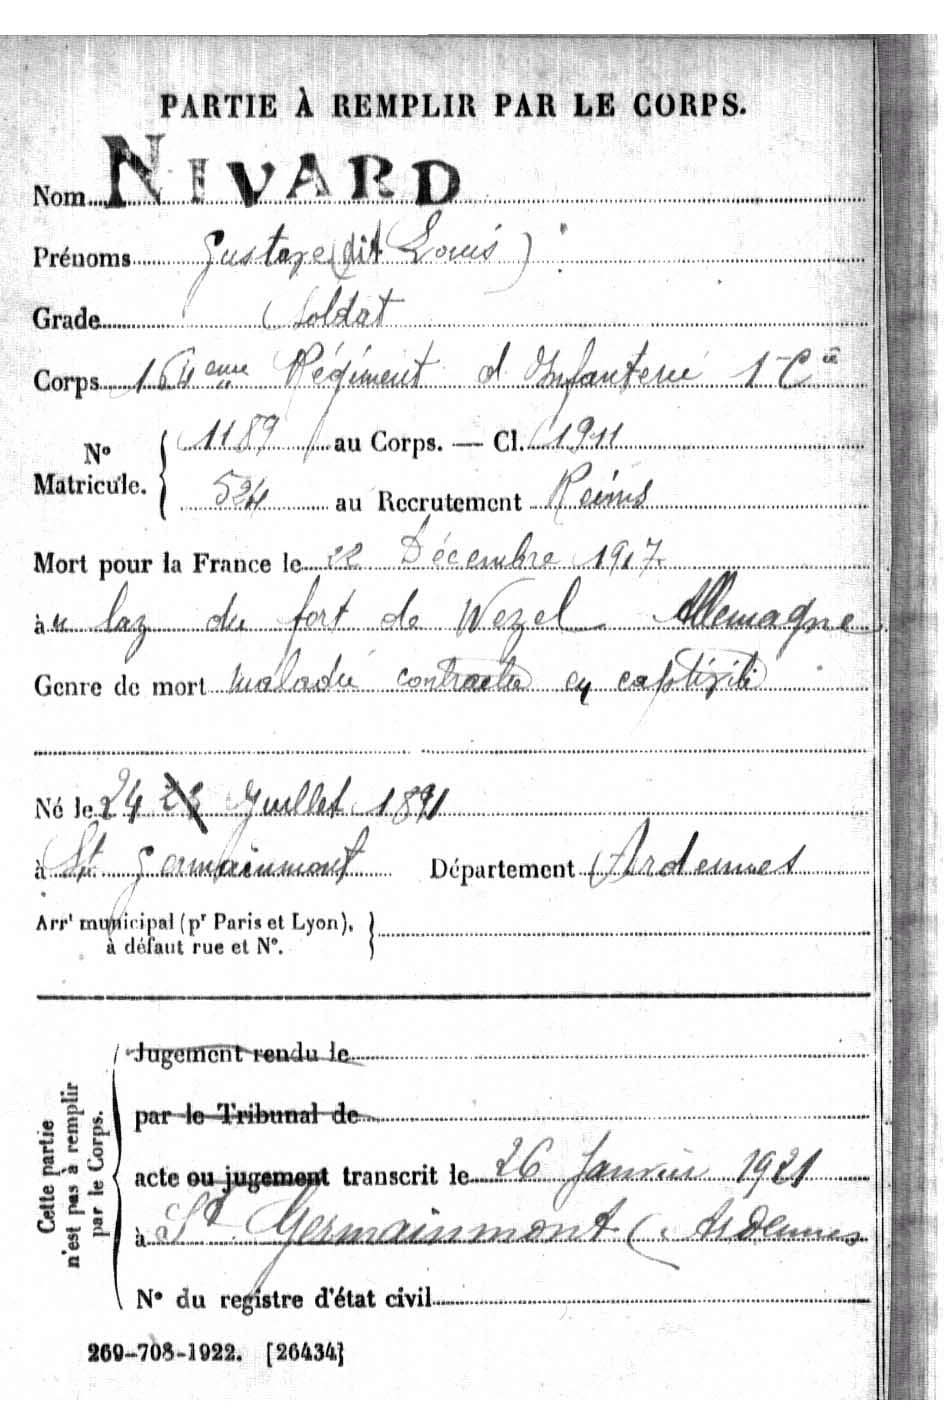 PARTIE À REMPLIR PAR LE CORPS.
Nom NIVARD
Prénoms Gustave (dit Louis)
Grade Soldat
Corps 164eme Régiment d'Infanterie 1 Cie
N° Matricule. 1189 au Corps. — Cl. 1911
524 au Recrutement Reims
Mort pour la France le 22 Décembre 1917
à u laz du fort de Wezel Allemagne
Genre de mort maladie contractée en captivité
Né le 24 23 Juillet 1891
à St Germainmont Département Ardennes
Arrt municipal (pr Paris et Lyon),
à défaut rue et N°.
Cette partie
n'est pas à remplir
par le Corps.
Jugement rendu le
par le Tribunal de
acte ou jugement transcrit le 26 Janvier 1921
à St Germainmont (Ardennes
N° du registre d'état civil
269-708-1922. [26434]